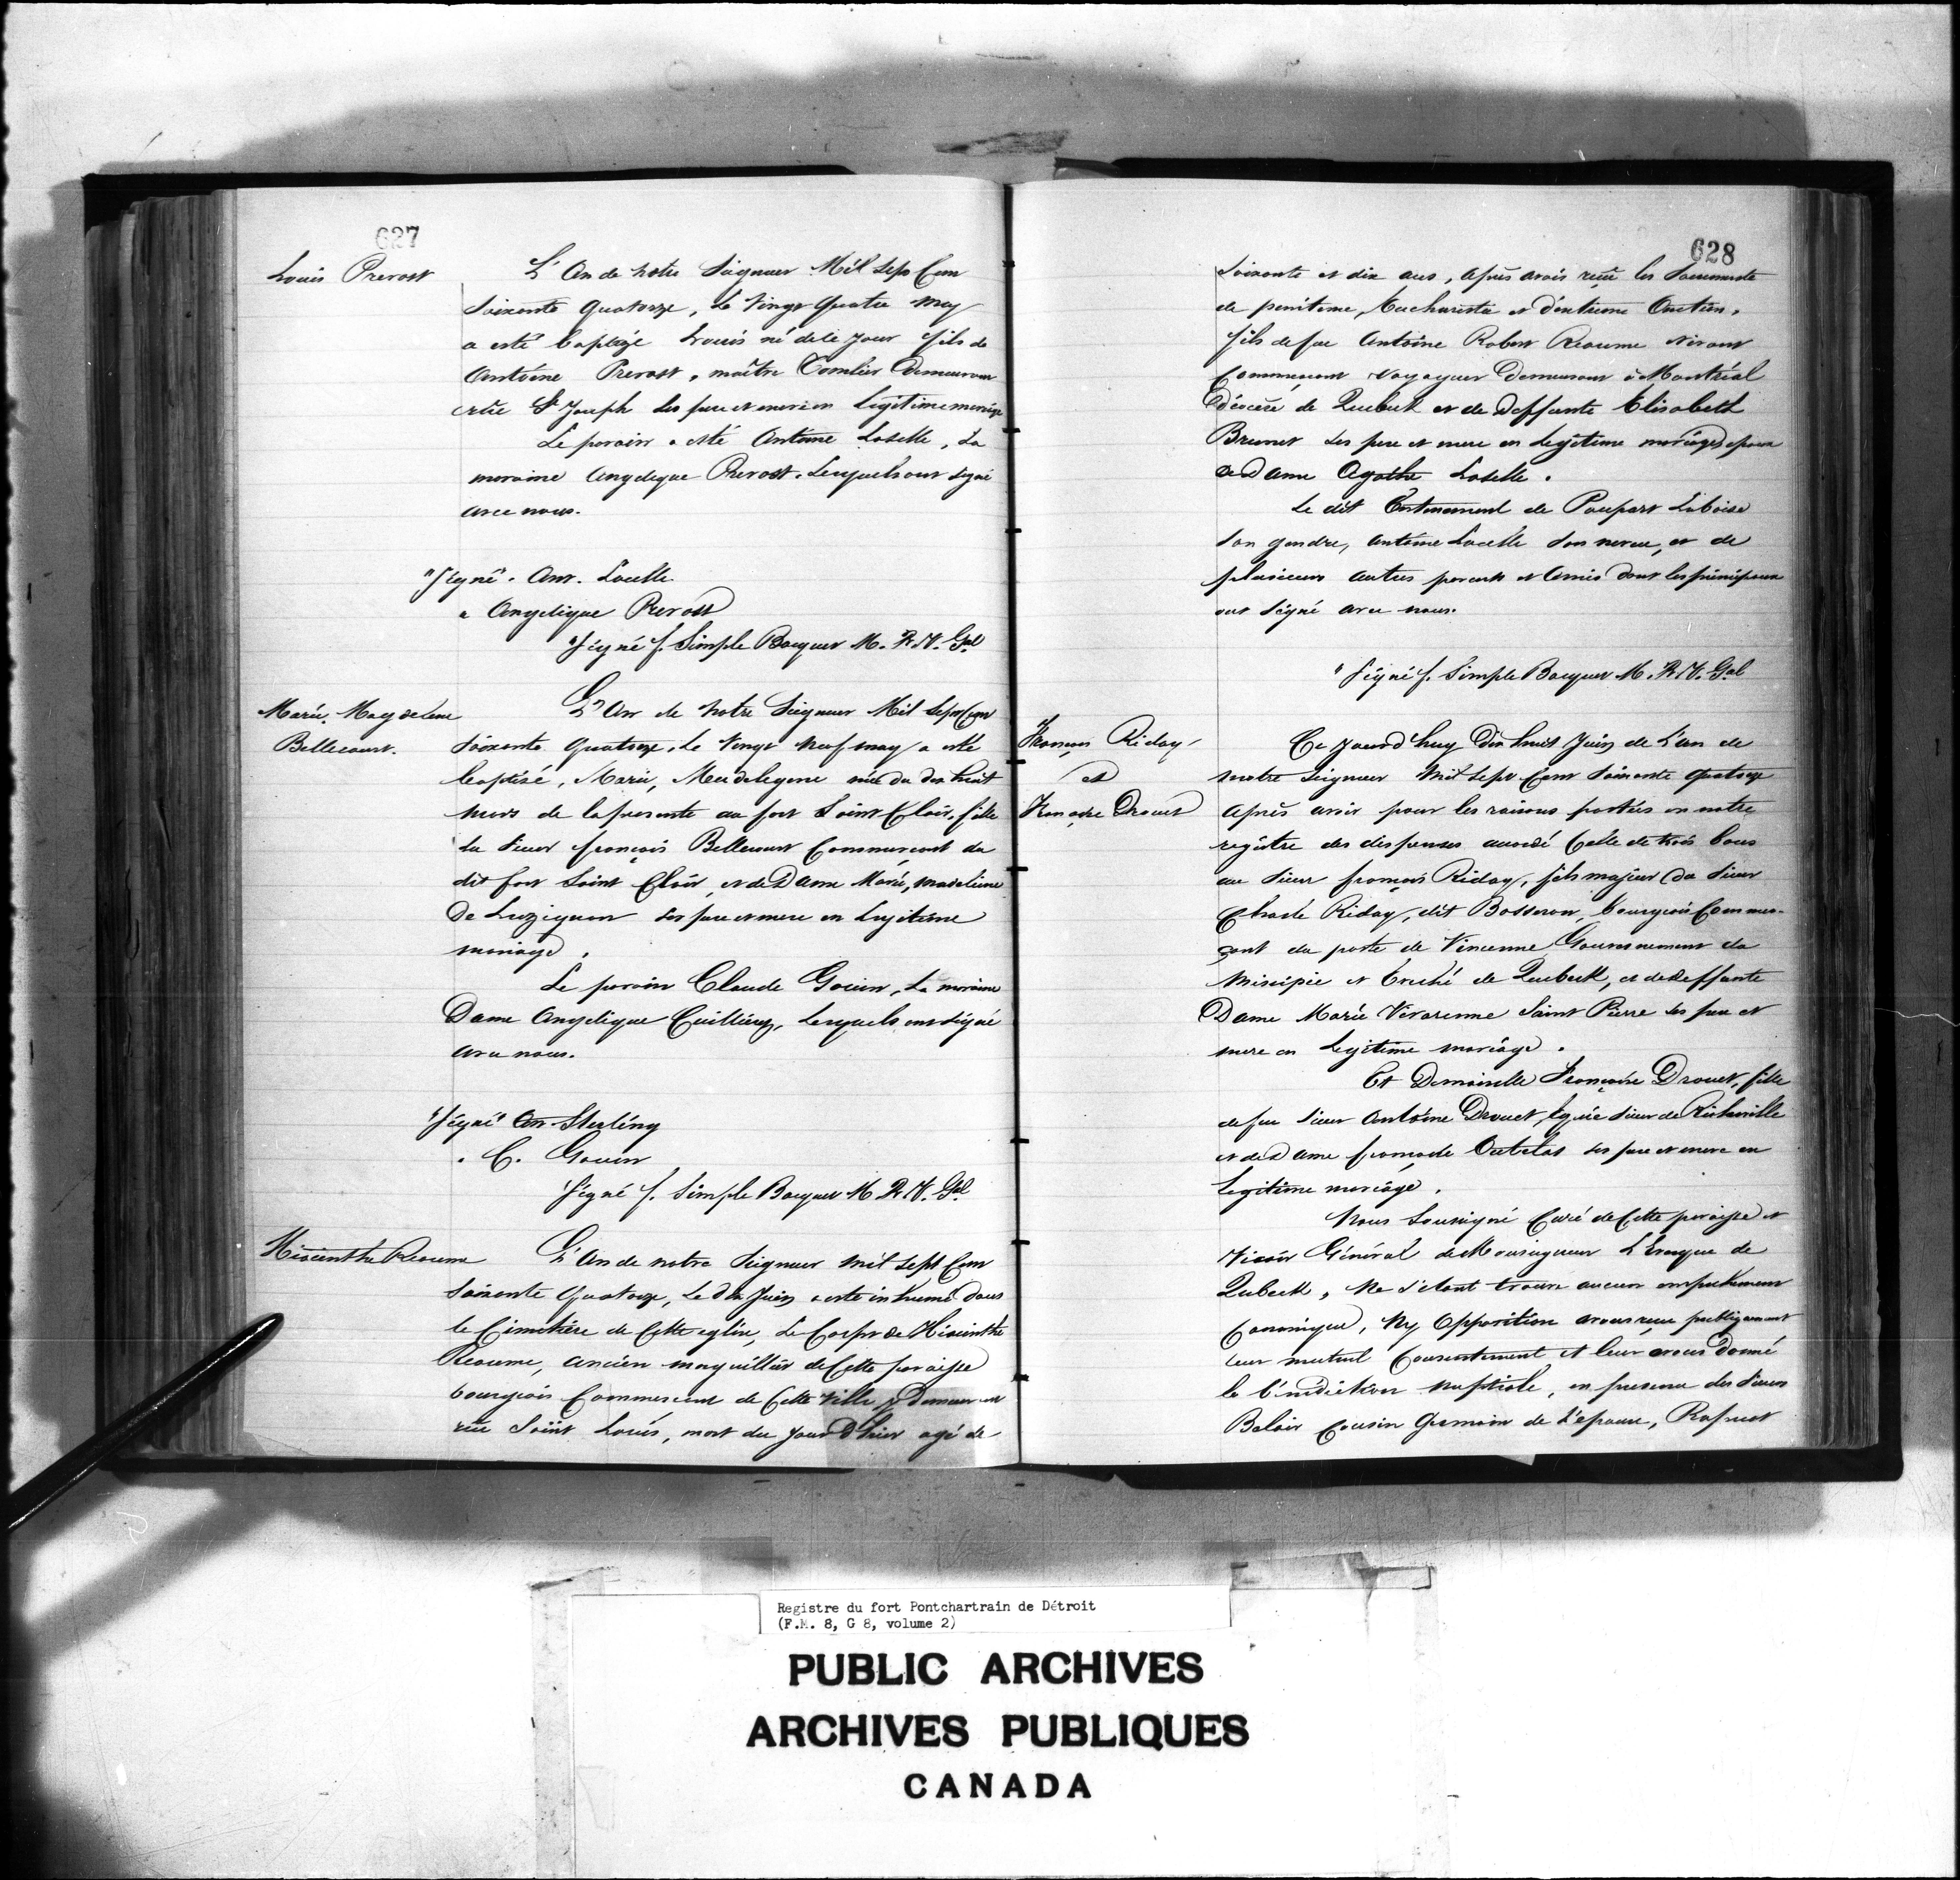 627
Louis Prevost
L'An de notre Seigneur Mil Sept Cens
Soixante Quatorze, Le Vingt Quatre may
a esté baptizé Louis né dele jour fils de
Antoine Prevost, maître Tonnlier Demeurant
rüe St Joseph Ses pere et mere en Legitime mariage
Le parain a esté Antoine Laselle, La
maraine Angelique Prevost. Lesquels ont signé
avec nous.
"Signé". Ant. Lacelle
" Angelique Prevost
"Signé f. Simple Bocquet M. R. V. Gal
Marie Magdelene
Bellecourt.
L'An de Notre Seigneur Mil Sept Cens
Soixante Quatorze, Le Vingt Neuf may a esté
baptisé, Marie, Madelegene née du dix huit
mars de la presente au fort Saint Clair, fille
du Sieur françois Bellecourt Commercant du
dit fort Saint Clair, et de Dame Marie, madeleine
De Luzignan Ses pere et mere en Legitime
mariage.
Le parain Claude Gouin, La maraine
Dame Angelique Cuillierez, Lesquels ont signé
avec nous.
"Signé" An Sterling
" C. Gouin
Signé f. Simple Bocquet M R. V. Gal
Hiacinthe Reaume
L'An de notre Seigneur Mil Sept Cens
Soixante Quatorze, Le dix Juin a esté inhumé dans
le Cimetière de Cette eglise, Le Corps de Hiacinthe
Reaume, ancien marguillier de Cette paroisse
bourgeois Commercant de Cette Ville Demeurant
rüe Saint Louis, mort du jour D'hier agé de
628
Soixante et dix ans, après avoir reçu les Sacremente
de penitence, Eucharistie et d'extreme Onction,
fils de feu Antoine Robert Reaume vivant
Commercant voyageur Demeurant à Montréal
Diocèse de Quebeck et de Deffunte Elisabeth
Brunet Ses pere et mere en Legitime mariage epoux
de Dame Agathe Laselle.
Le dit Enterrement de Poupart Laboise
Son gendre, Antoine Lacelle Son neveu, et de
plusieurs autres parents et Amis dont les principaux
ont Signé avec nous.
"Signé f. Simple Bocquet M. R. V. Gal
François Riday
et
Françoise Drouet
Ce jourd'huy Dix huit Juin de L'an de
nostre Seigneur Mil Sept Cens Soixante Quatorze
après avoir pour les raisons portées en notre
registre des dispenses accordé Celle de trois bans
au Sieur françois Riday, fils majeur du Sieur
Charle Riday, dit Bosseron, bourgeois Commer-
cant du poste de Vincenne Gouvernement du
Missipie et Eveché de Quebeck, et de deffunte
Dame Marie Vivarenne Saint Pierre Ses pere et
mere en Legitime mariage.
Et Demoiselle Françoise Drouet, fille
de feu Sieur Antoine Drouet, Equié Sieur de Richarville
et de Dame françoise Outelas Ses pere et mere en
Legitime mariage.
Nous Soussigné Curé de Cette paroisse et
Vicair Général de Monseigneur L'Eveque de
Qubeck, Ne S'etant trouve aucun empechement
Canonique, Ny Opposition avons reçu publiquement
leur mutuel Consentement et leur avons Donné
la benediction nuptiale, en presence des Sieurs
Belair Cousin Germain de L'epouse, Rapuet
Registre du fort Pontchartrain de Détroit
(F.M. 8, G 8, volume 2)
PUBLIC ARCHIVES
ARCHIVES PUBLIQUES
CANADA